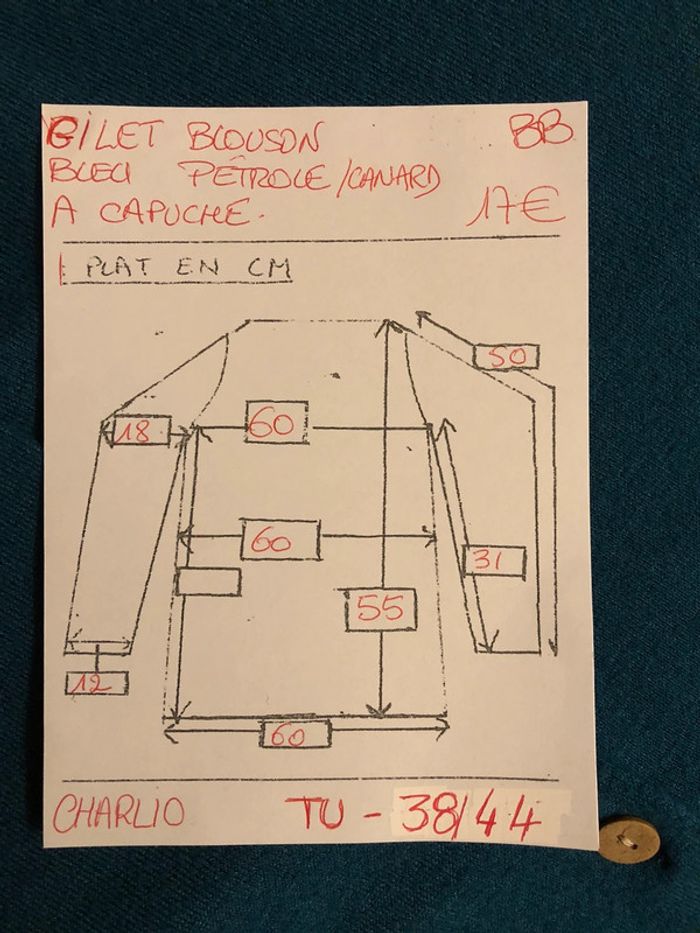 GILET BLOUSON BB
BLEU PÉTROLE/CANARD
A CAPUCHE. 17€
PLAT EN CM
50
18 60
60 31
55
12
60
CHARLIO TU - 38/44